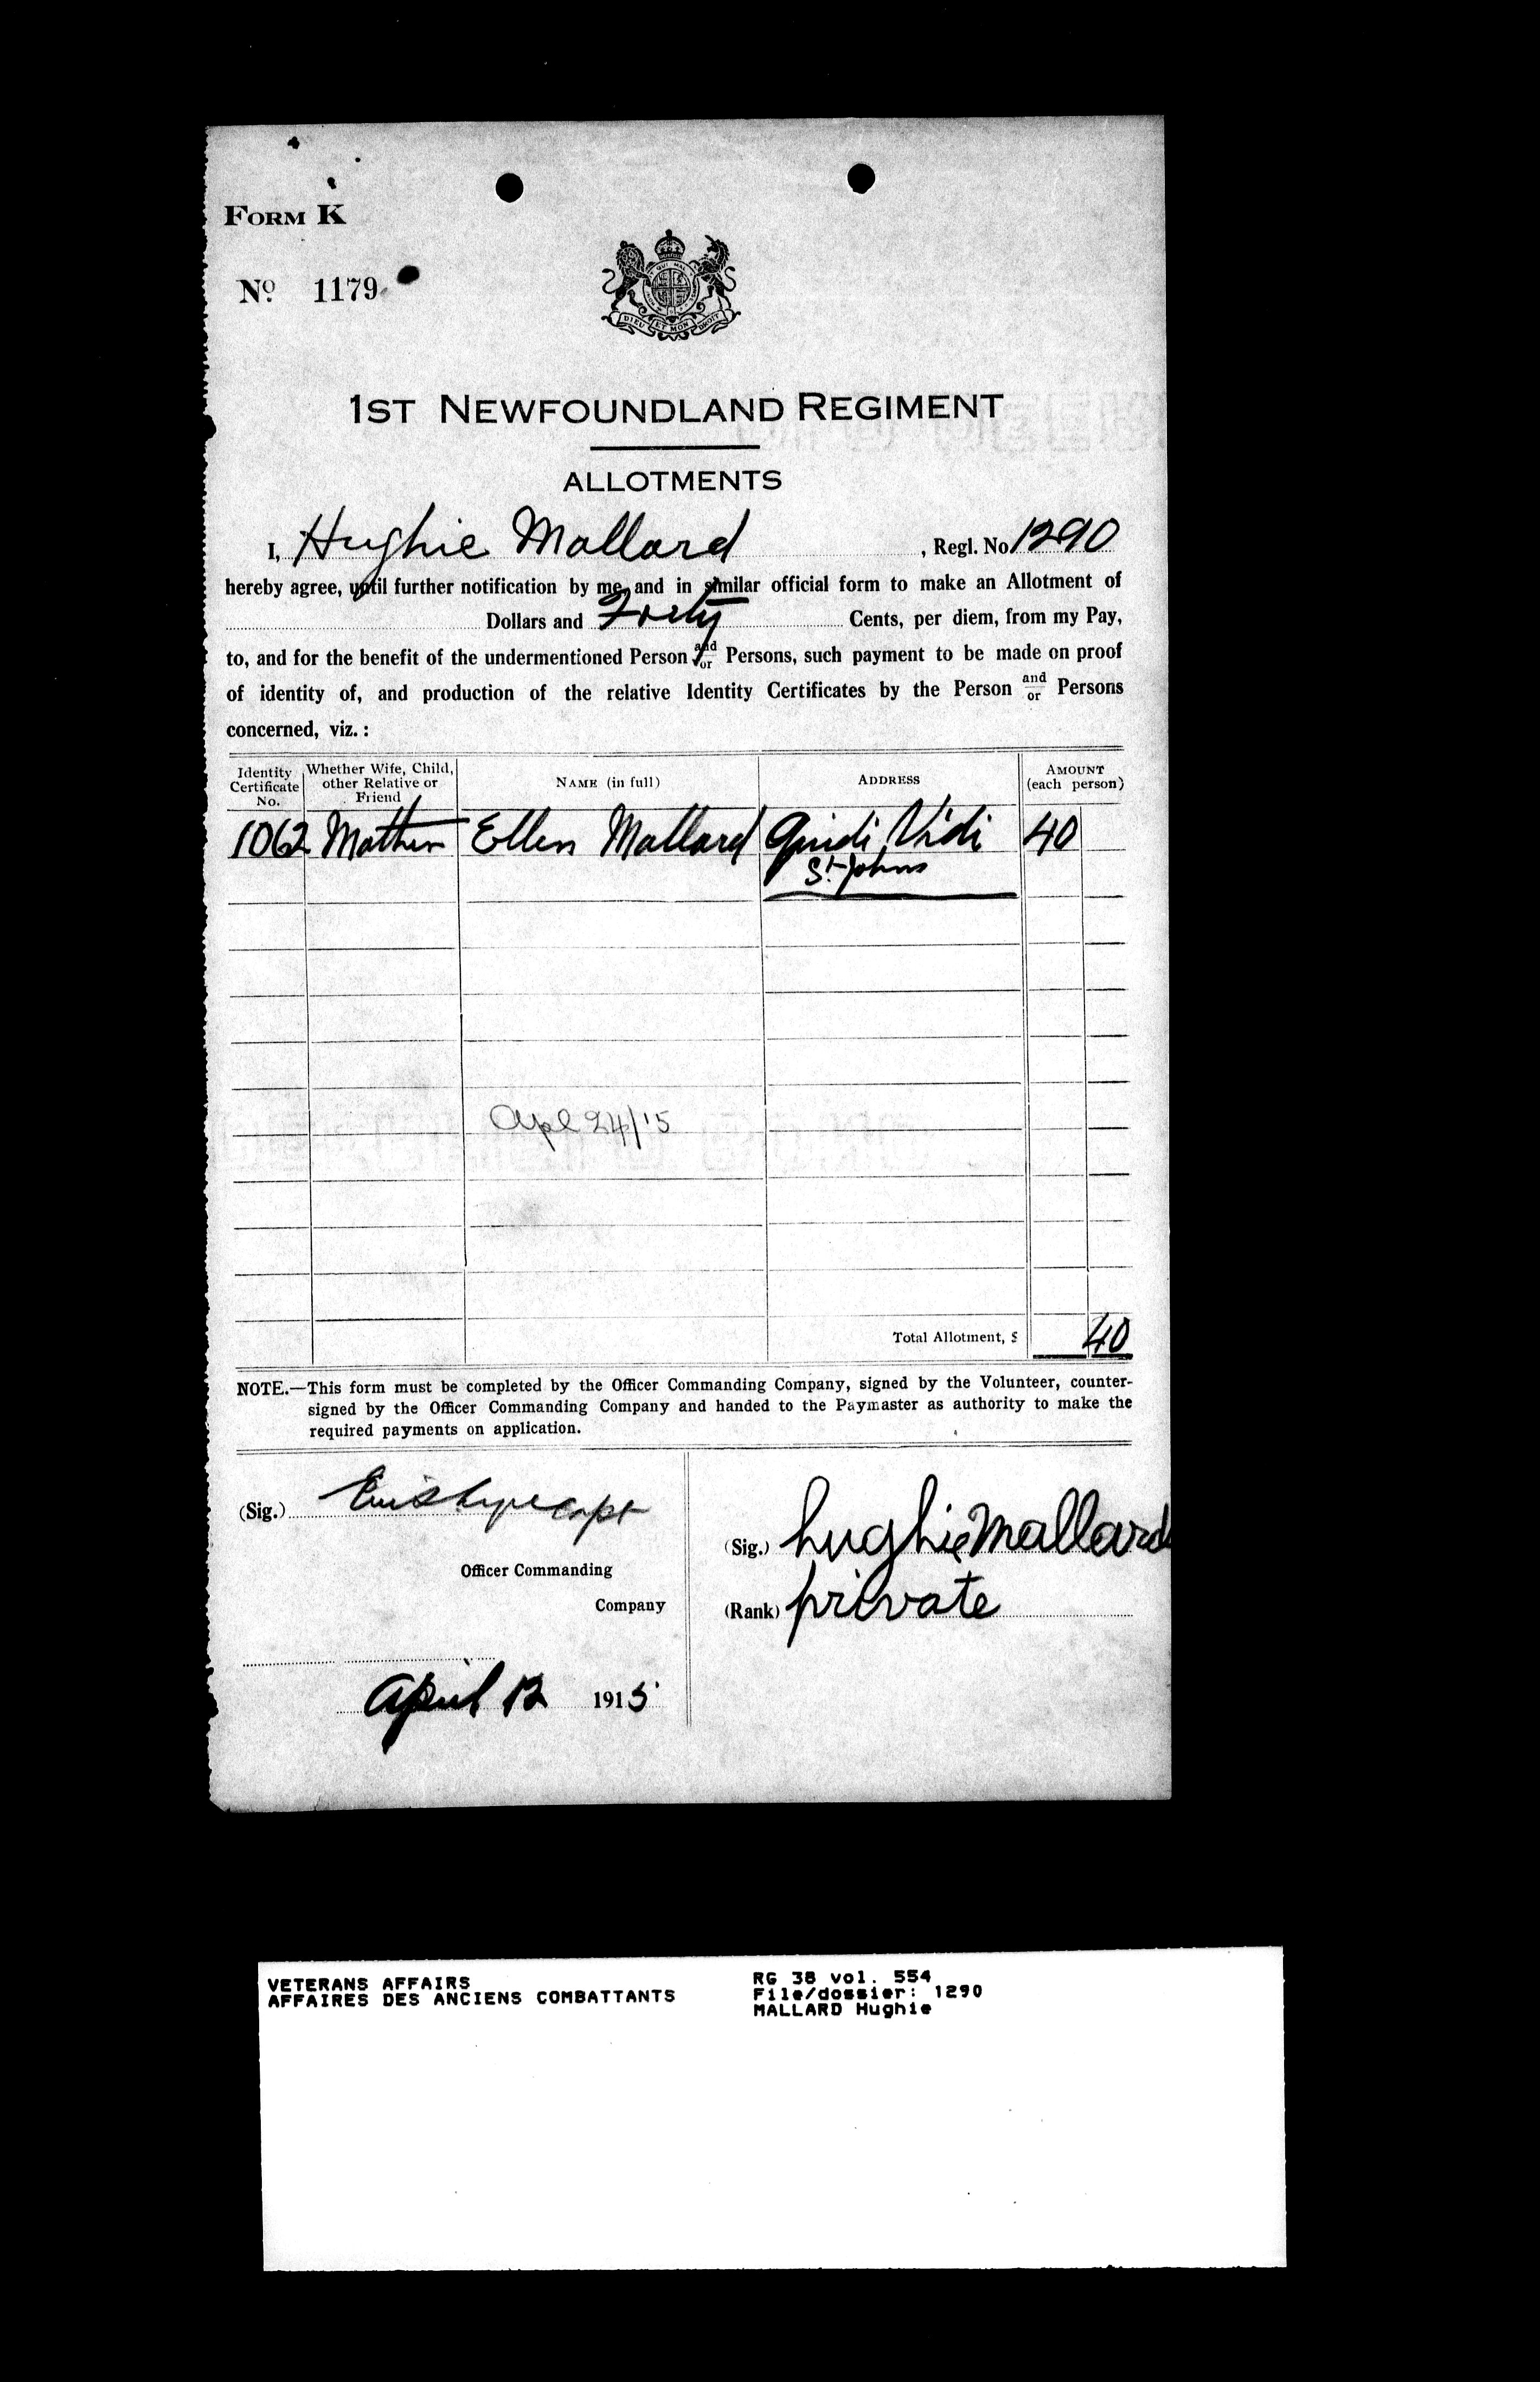 FORM K
No. 1179
DIEU ET MON DROIT
1ST NEWFOUNDLAND REGIMENT
ALLOTMENTS
I, Hughie Mallard, Regl. No 1290
hereby agree, until further notification by me, and in similar official form to make an Allotment of
Dollars and Forty Cents, per diem, from my Pay,
to, and for the benefit of the undermentioned Person and/or Persons, such payment to be made on proof
of identity of, and production of the relative Identity Certificates by the Person and/or Persons
concerned, viz.:
Identity Certificate No. Whether Wife, Child, other Relative or Friend NAME (in full) ADDRESS AMOUNT (each person)
1062 Mother Ellen Mallard Quidi Vidi 40
St. Johns
Apl 24/15
Total Allotment, $ 40
NOTE.—This form must be completed by the Officer Commanding Company, signed by the Volunteer, counter-
signed by the Officer Commanding Company and handed to the Paymaster as authority to make the
required payments on application.
(Sig.) Capt
Officer Commanding
Company
(Sig.) hughie Mallard
(Rank) private
April 12 1915
VETERANS AFFAIRS
AFFAIRES DES ANCIENS COMBATTANTS
RG 38 vol. 554
File/dossier: 1290
MALLARD Hughie